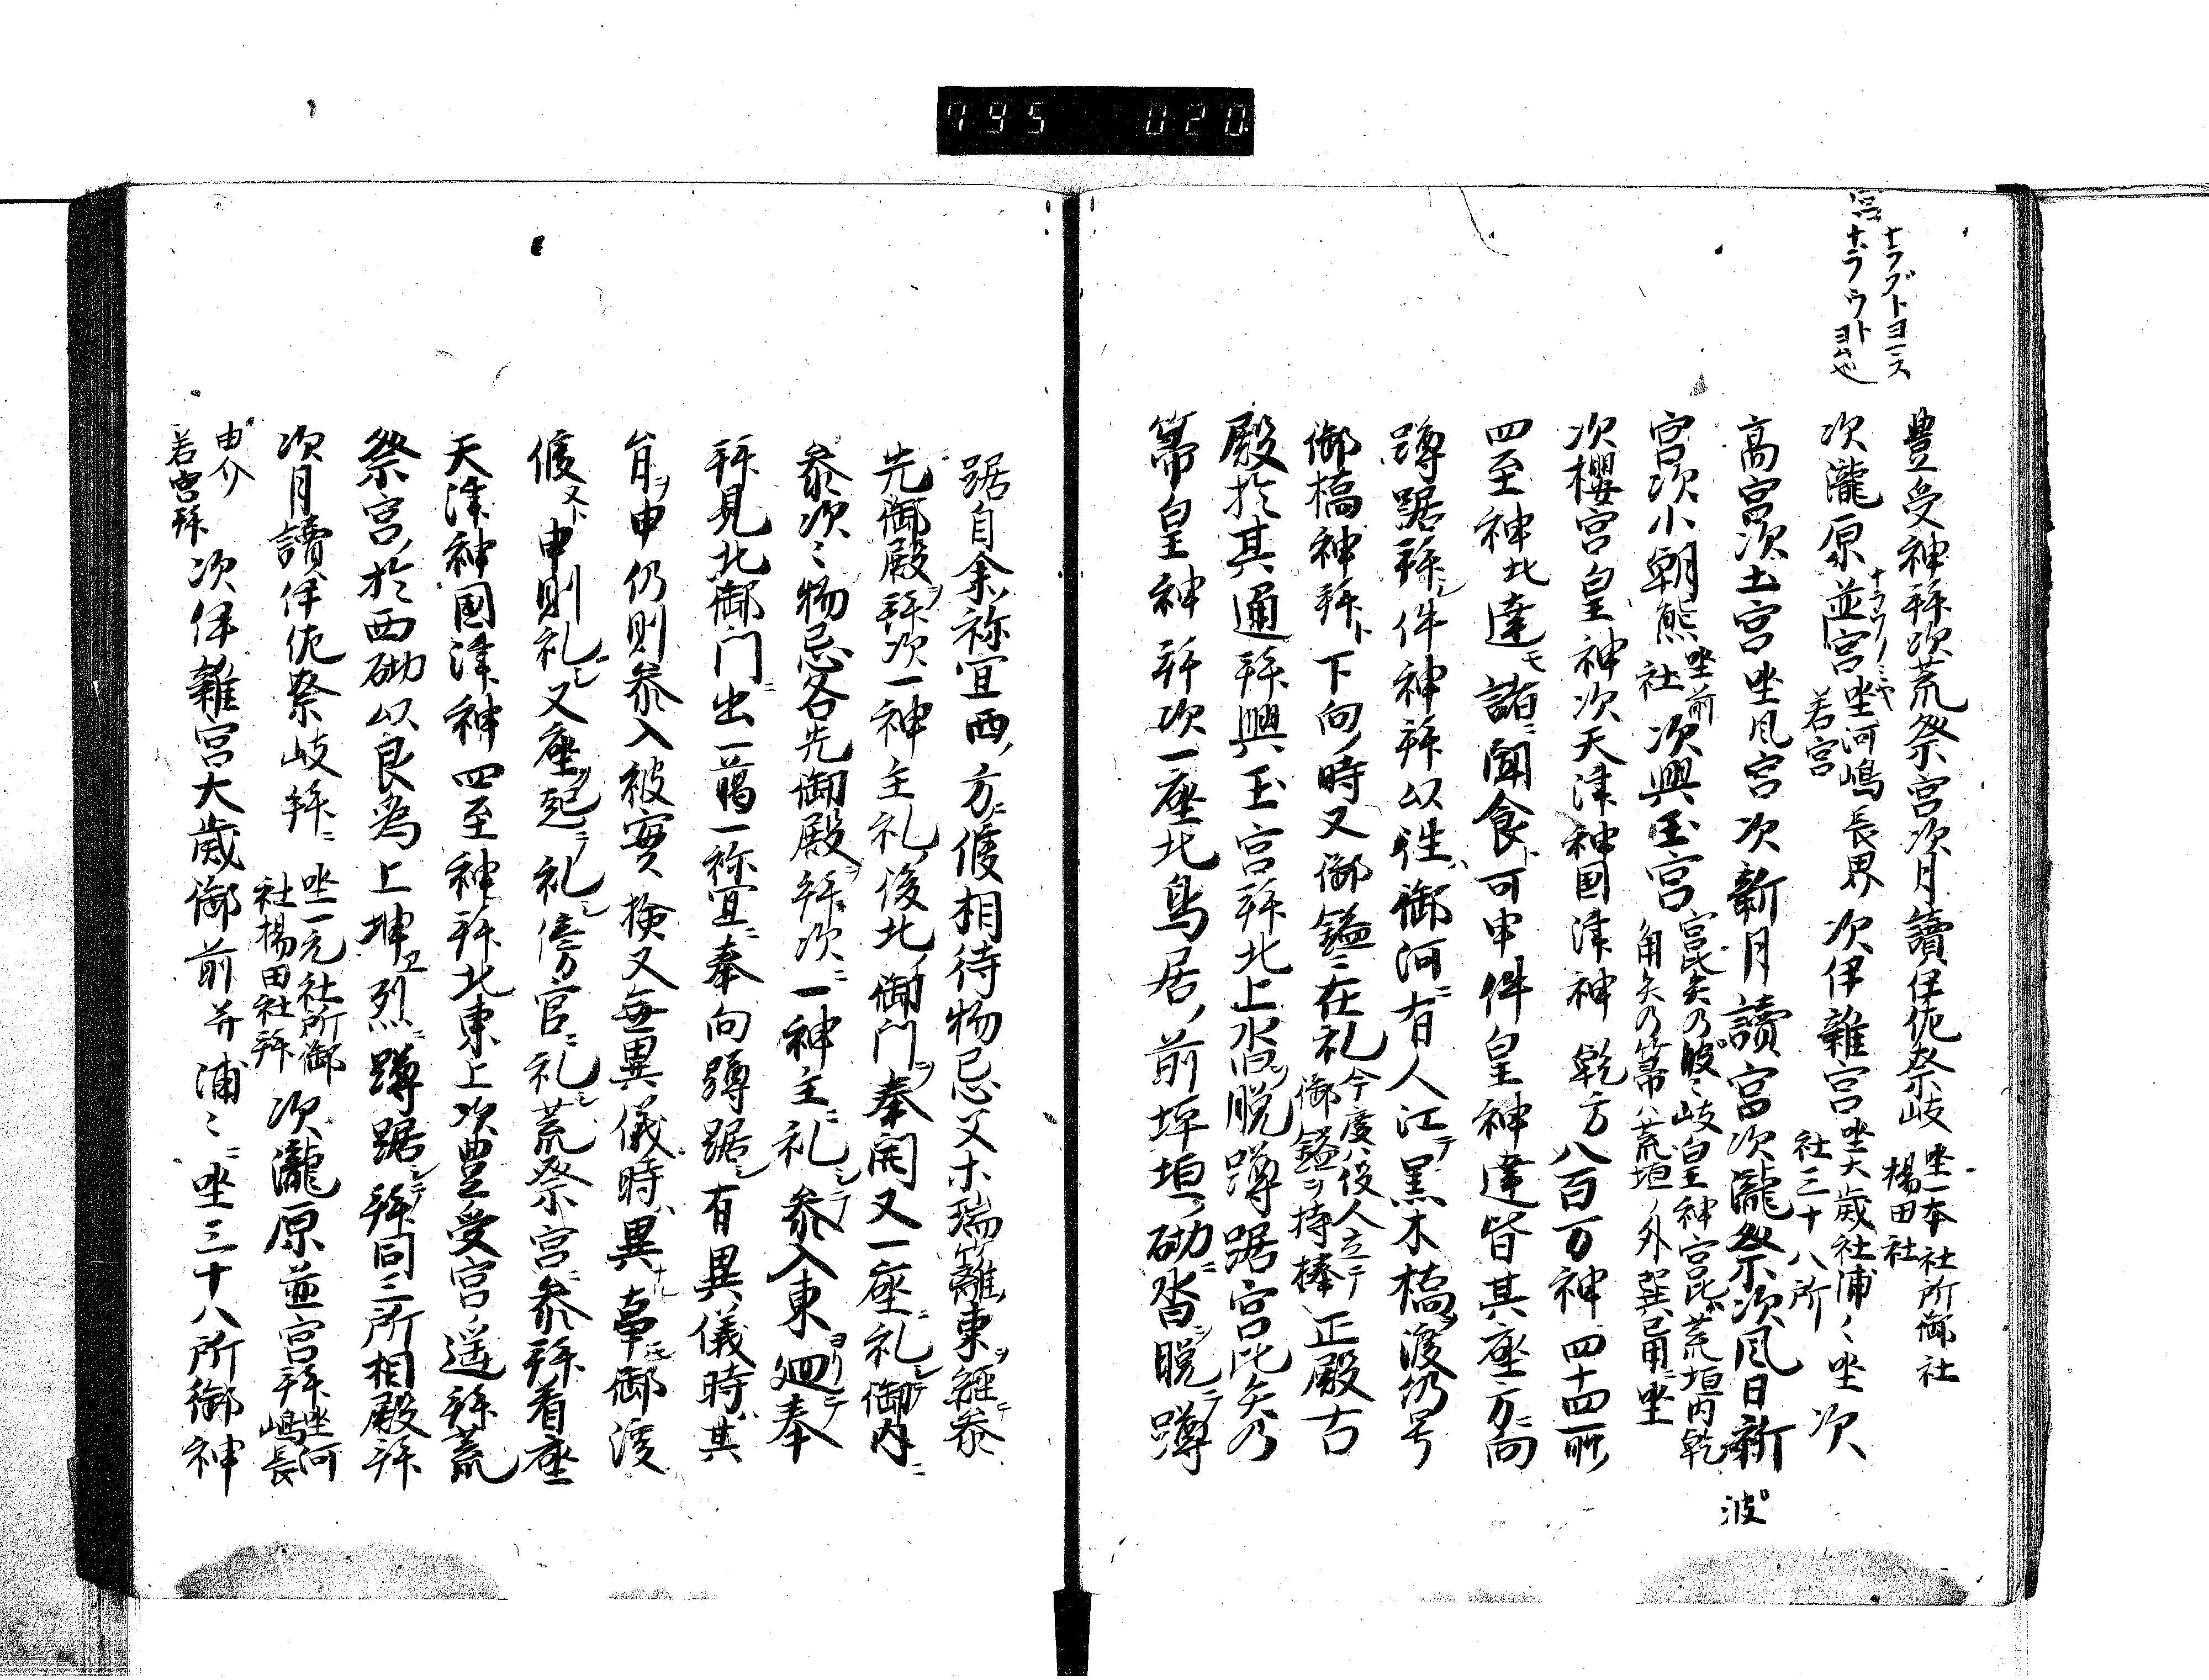 795 020
ナラブトヨミス
宮ナラウトヨム也
豊受神拜次荒祭宮次月讀伊佐奈岐 坐一本社所御社
楊田社
次瀧原並宮 坐河嶋長界 若宮 次伊雜宮 坐大歳社浦〻坐 社三十八所 次
ナラフノミヤ
高宮次土宮坐風宮次新月讀宮次瀧祭次風日新
波
宮次小朝熊 坐前社 次興玉宮 宮比矢乃波〻岐皇神宮比荒垣内乾
角矢乃箒ハ荒垣ノ外巽角ニ坐
次櫻宮皇神次天津神国津神 乾方八百万神四十四所
四至神北達モ諸ニ聞食ト可申件皇神達皆其座方ニ向
蹲踞拜シ件神拜以往ハ御河ニ有人江テ黒木橋ヲ渡仍号
御橋神拜ト下向ノ時又御鎰ニ在礼 今度ハ役人立テ
御鎰ヲ持棒 正殿古
殿於其通拜興玉宮拜北上沓ヲ脱蹲踞宮比矢乃
箒皇神拜次一座北鳥居ノ前坪垣ノ砌ニ沓ヲ脱テ蹲
踞自余祢宜西ノ方ニ候相待物忌父木瑞籬東ヲ經テ参
先御殿ヲ拜次一神主礼ヲ後北ノ御門ヲ奉開又一座ニ礼シテ御内ニ
参次〻物忌各先御殿ヲ拜次ニ一神主ニ礼シテ参入東ヨリ廻テ奉
拜見北御門ニ出一﨟一祢宜ニ奉向蹲踞シ有異儀時ハ其
旨ヲ申仍則参入被實檢又毎異儀時ハ異ナル事モ御渡
候ヌト申則礼シ又座ヲ起テ礼シ傍官ニ礼シ荒祭宮ニ参拜着座
天津神國津神四至神拜北東上次豊受宮ノ遥拜荒
祭宮ノ於西砌以良為上坤ニ烈ニ蹲踞シテ拜同三所相殿拜
次月讀伊佐奈岐拜ニ 坐一元社所御
社楊田社拜 次瀧原並宮拜 坐河
嶋長
申介
若宮拜 次伊雜宮大歳御前并浦〻ニ坐三十八所御神